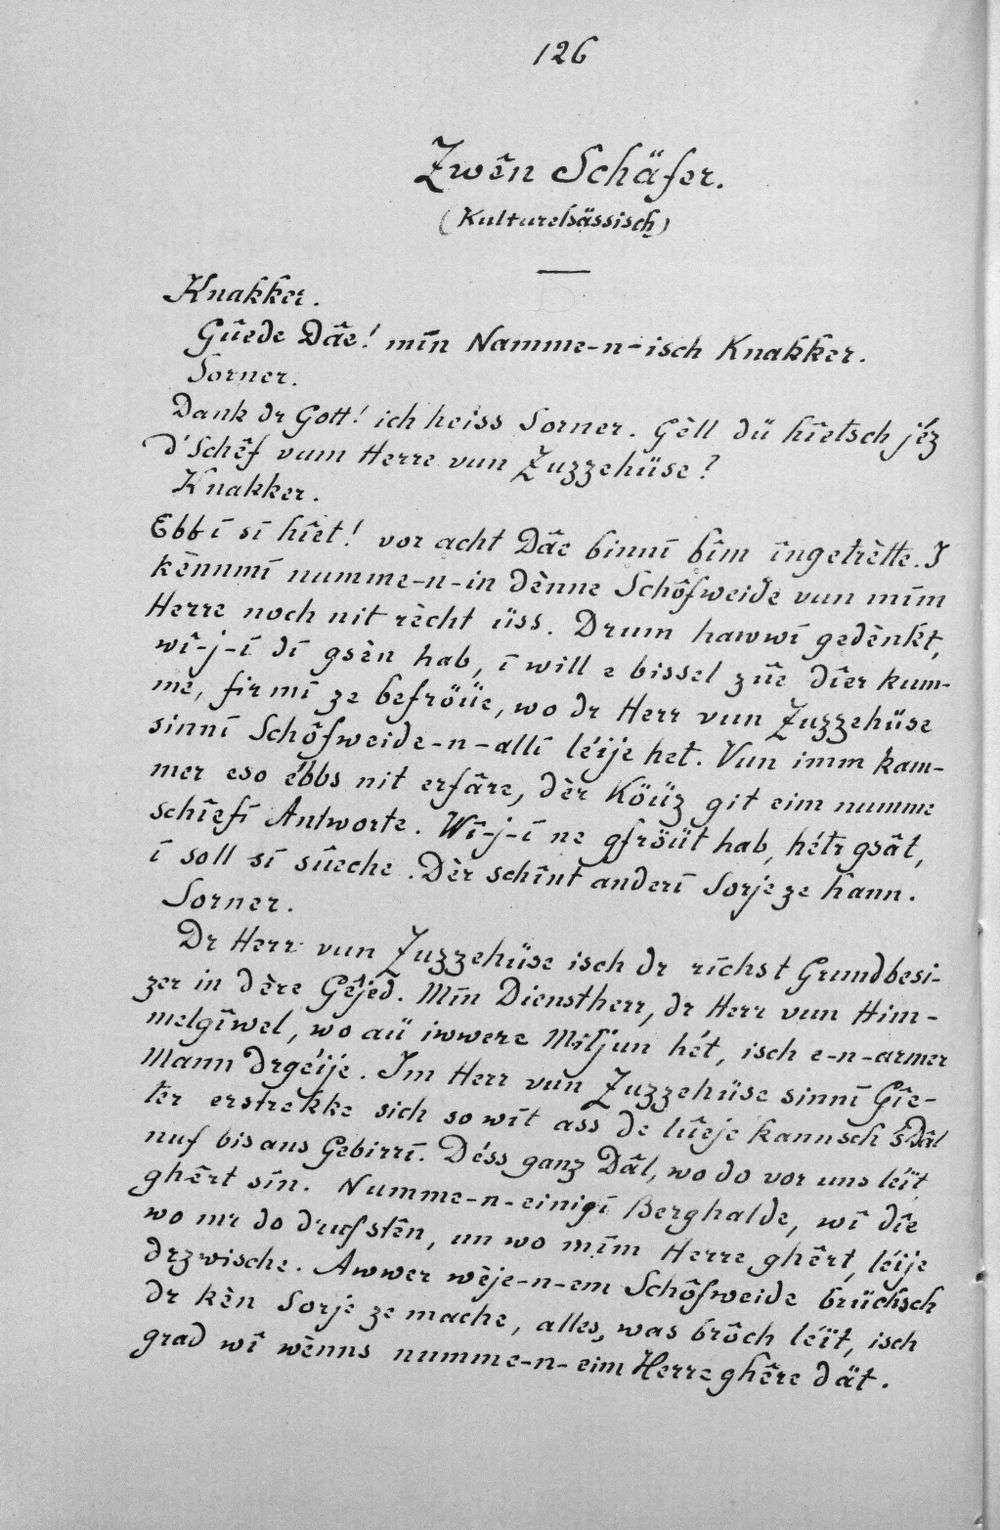 126
Zwên Schäfer.
(Kulturelsässisch)
Knakker.
Gûede Dâe! mīn Namme-n-isch Knakker.
Sorner.
Dank dr Gott! ich heiss Sorner. Gèll dü hîetsch jéz
d'Schêf vum Herre vun Zuzzehüse?
Knakker.
Ebb ī sī hîet! vor acht Dâe binnī bîm īngetrètte. I
kènnmī numme-n-in dènne Schôfweide vun mīm
Herre noch nit rècht üss. Drum hawwī gedènkt,
wî-j-ī dī gsèn hab, ī will e bissel zûe dîer kum-
me, fir mī ze befröüe, wo dr Herr vun Zuzzehüse
sinnī Schôfweide-n-allī léije het. Vun imm kam-
mer eso ébbs nit erfâre, dèr Köüz git eim numme
schîefī Antworte. Wî-j-ī ne gfröüt hab, hétr gsât,
ī soll sī sûeche. Dèr schīnt anderī Sorje ze hann.
Sorner.
Dr Herr vun Zuzzehüse isch dr rīchst Grundbesi-
zer in dère Gêjed. Mīn Dienstherr, dr Herr vun Him-
melgīwel, wo aü iwwere Miljun hét, isch e-n-armer
Mann drgéije. Im Herr vun Zuzzehüse sinnī Gîe-
ter erstrekke sich so wīt ass de lûeje kannsch 's Dâl
nuf bis ans Gebirrī. Déss ganz Dâl, wo do vor uns léït
ghêrt sīn. Numme-n-einigī Berghalde, wî dîe
wo mr do druf stên, un wo mīm Herre ghêrt, léije
drzwische. Awwer wèje-n-em Schôfweide brüchsch
dr kèn Sorje ze mache, alles, was brôch léït, isch
grad wî wènns numme-n-eim Herre ghêre dät.